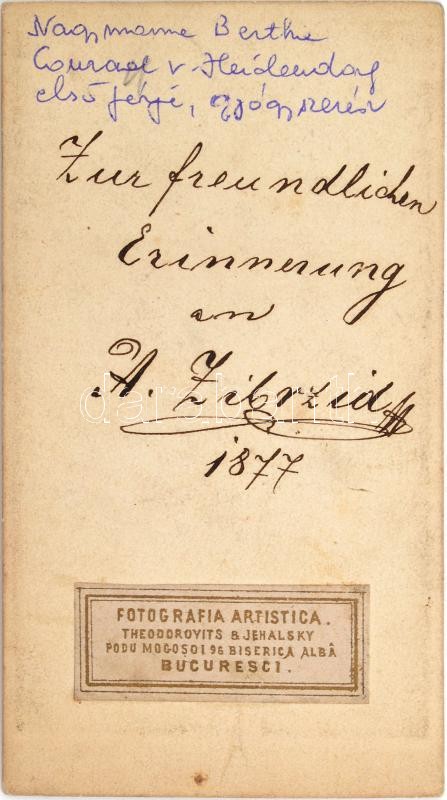 Nagymama Berthe
Conrad v. Heidendorf
első férje, gyógyszerész
Zur freundlichen
Erinnerung
an
A. Zibrzid
1877
darabanth
FOTOGRAFIA ARTISTICA.
THEODOROVITS & JEHALSKY
PODU MOGOSOI 96 BISERICA ALBÂ
BUCURESCI.